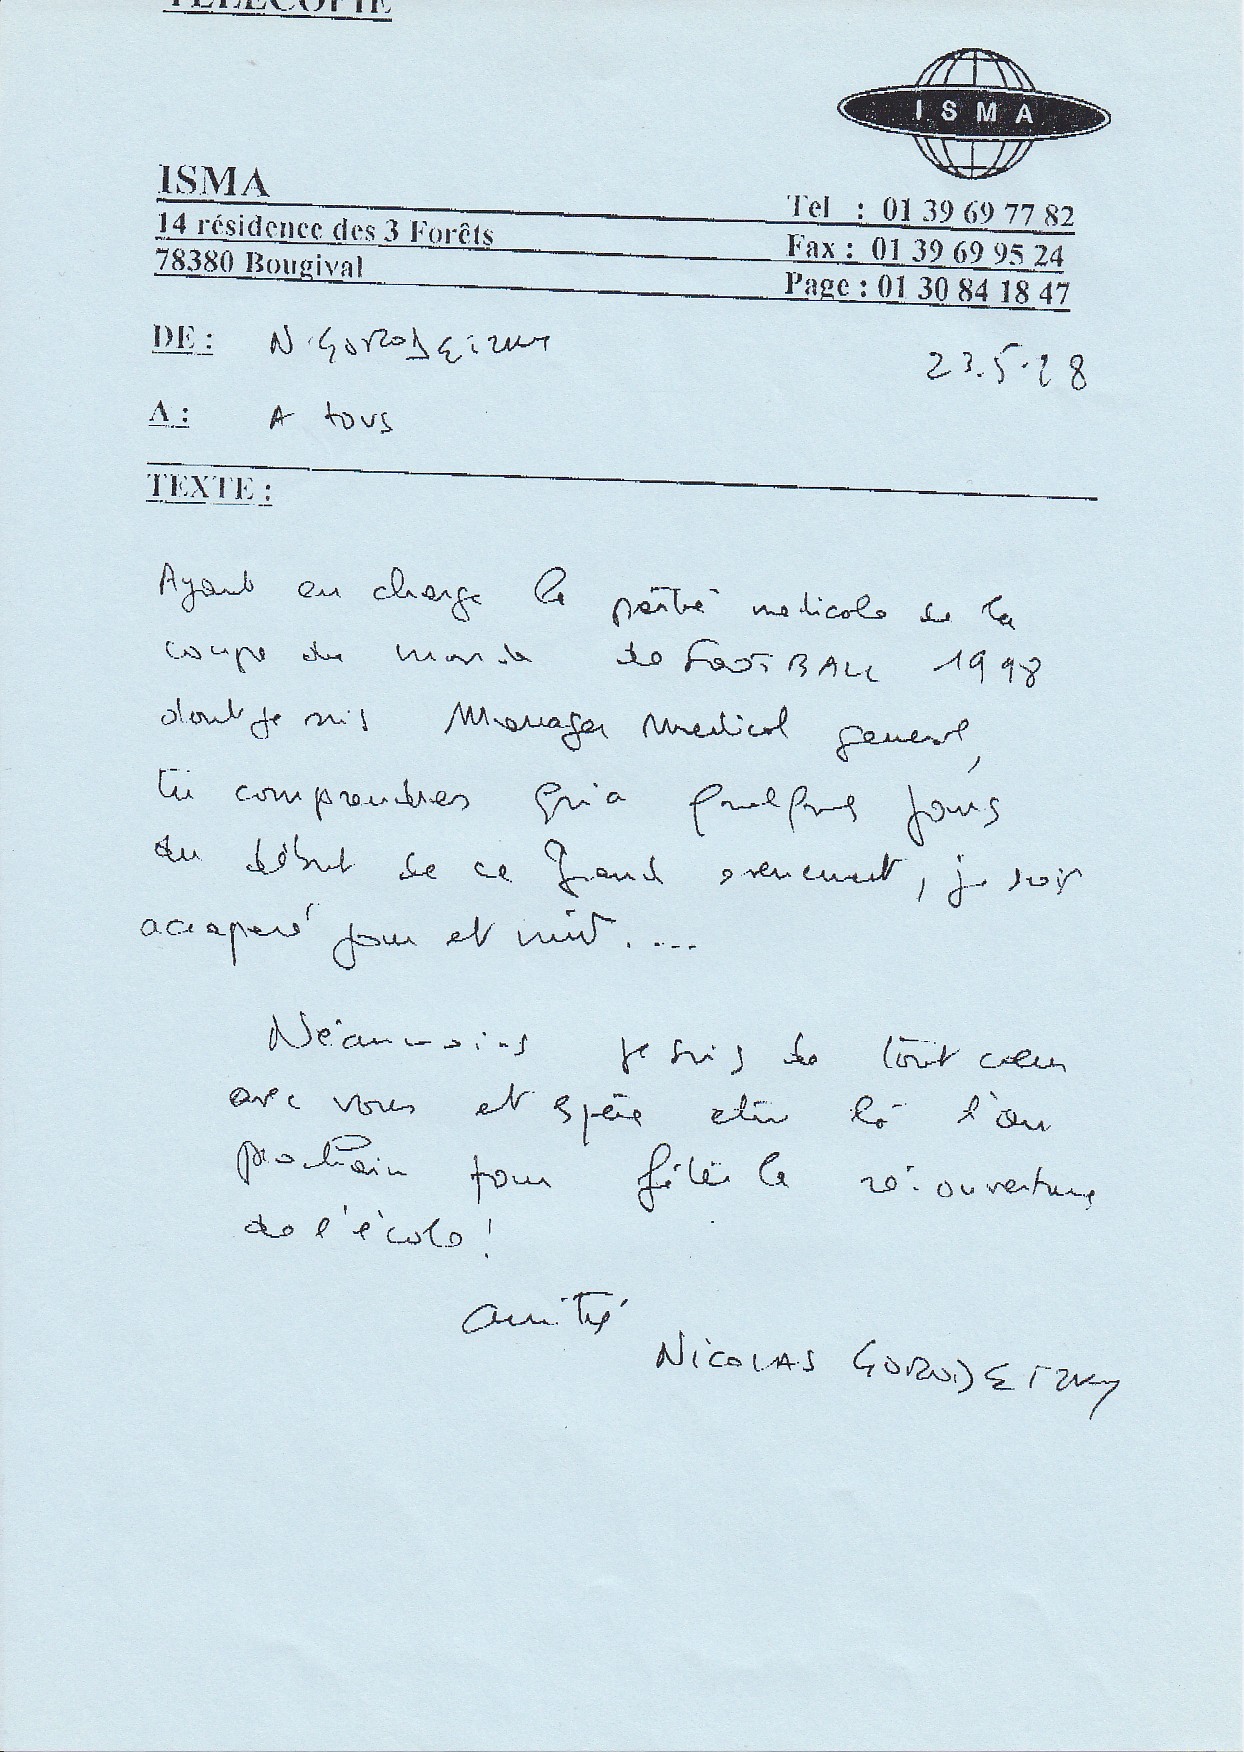 TELECOPIE
I S M A
ISMA
14 résidence des 3 Forêts
78380 Bougival
Tel : 01 39 69 77 82
Fax : 01 39 69 95 24
Page : 01 30 84 18 47
DE : N. GORODETZKY
23.5.98
A : A tous
TEXTE :
Ayant en charge la partie medicale de la
coupe du monde de FOOTBALL 1998
dont je suis Manager Medical general,
tu comprendras qu'a quelques jours
du début de ce grand evenement, je sois
accaparé jour et nuit....
Néanmoins je suis de tout cœur
avec vous et espère être là l'an
prochain pour fêter la ré-ouverture
de l'école !
amitié
NICOLAS GORODETZKY